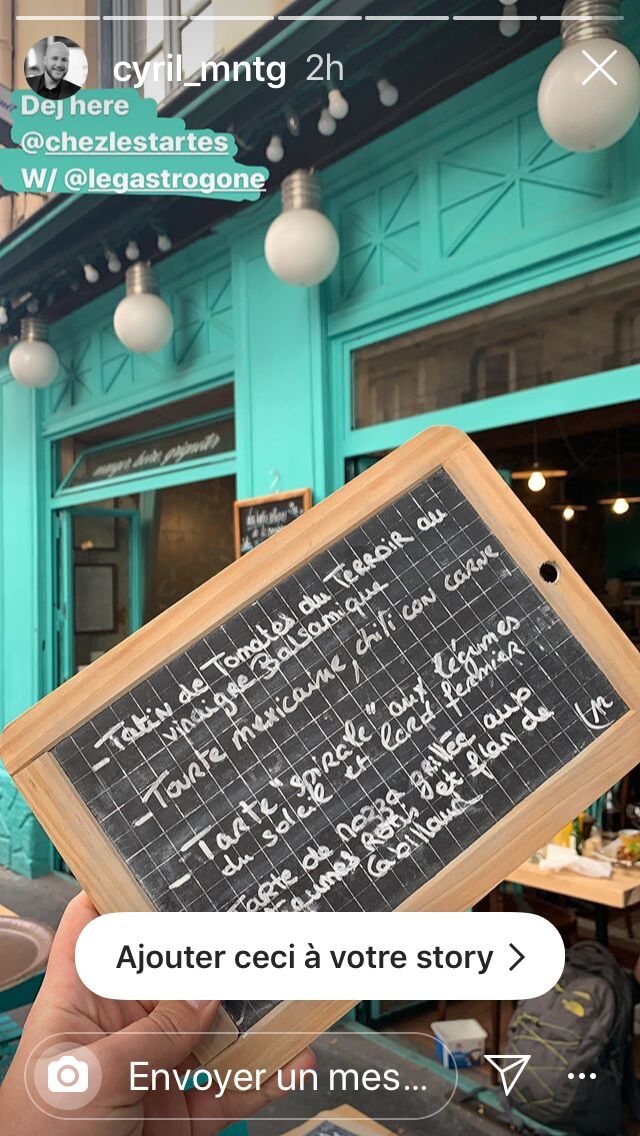 cyril_mntg 2h
Dej here
@chezlestartes
W/ @legastrogone
manger boire grignoter
- Tatin de Tomates du Terroir au
vinaigre Balsamique
- Tarte mexicaine, chili con carne
- Tarte "spirale" aux légumes
du soleil et lard fermier
Tarte de mozza grillée aux
légumes rotis et flan de
Cabillaud
Ajouter ceci à votre story
Envoyer un mes...